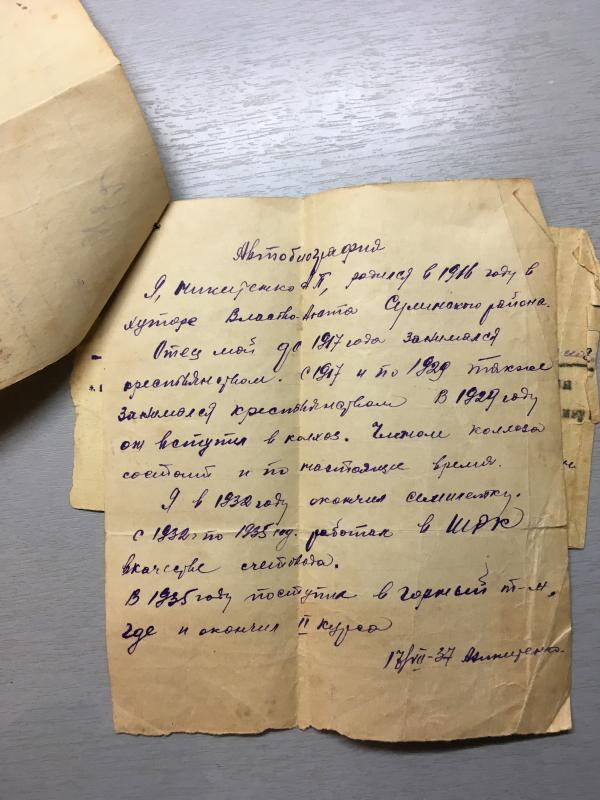 Автобиография
Я, Никитенко П, родился в 1916 году в
хуторе Власово-Аюта Сулинского района.
Отец мой до 1917 года занимался
крестьянством. С 1917 и по 1929 также
занимался крестьянством В 1929 году
он вступил в колхоз. Членом колхоза
состоит и по настоящие время.
Я в 1932 году окончил семилетку.
с 1932г по 1935 год. работал в
вкачестве счетовода.
В 1935 году поступил в горный т-м,
где и окончил II курса
17/VII-37 Никитенко